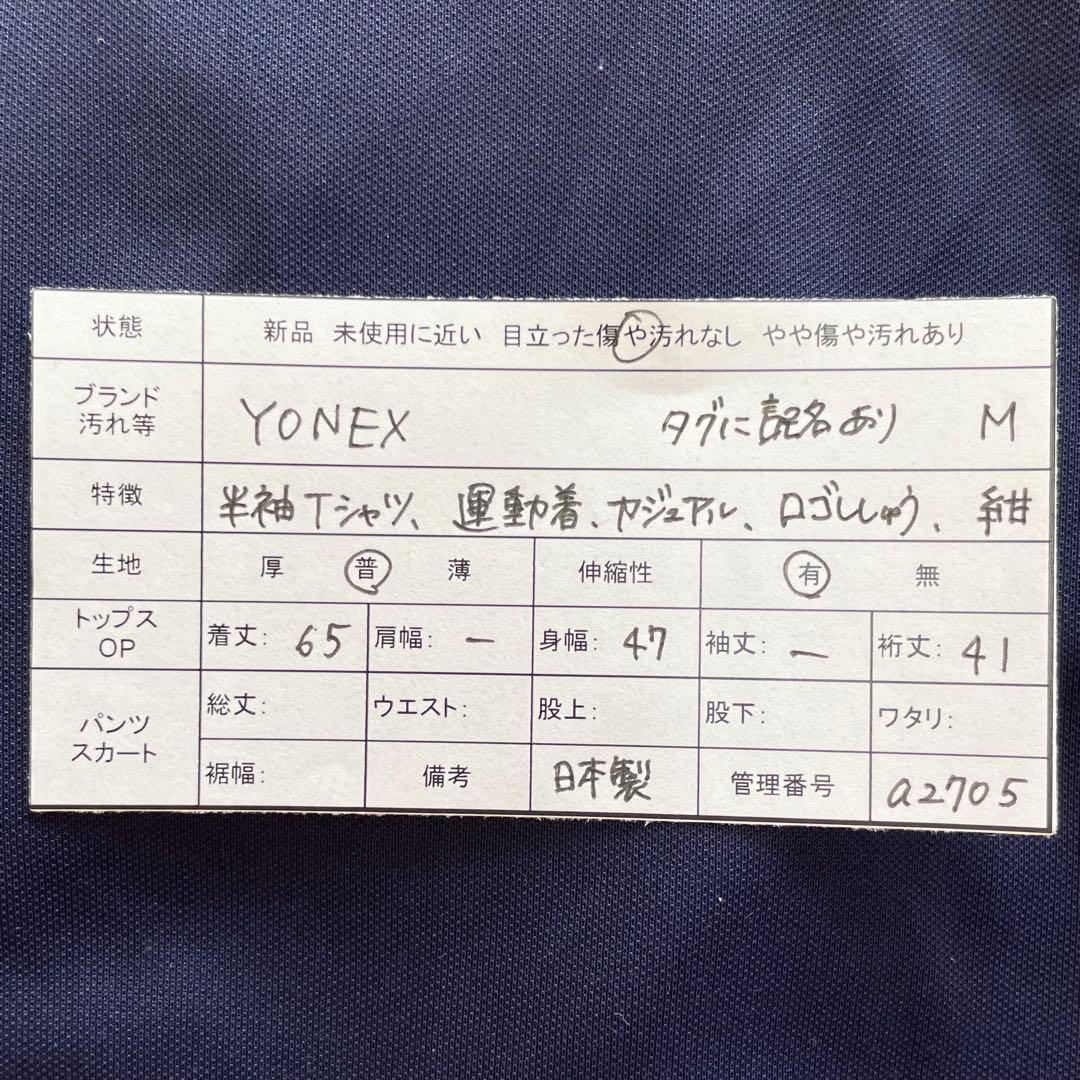 状態 新品 未使用に近い 目立った傷や汚れなし やや傷や汚れあり
ブランド
汚れ等 YONEX タグに記名あり M
特徴 半袖Tシャツ、運動着、カジュアル、ロゴししゅう、紺
生地 厚 普 薄 伸縮性 有 無
トップス
OP 着丈: 65 肩幅: ー 身幅: 47 袖丈: ー 裄丈: 41
パンツ
スカート 総丈: ウエスト: 股上: 股下: ワタリ:
裾幅: 備考 日本製 管理番号 a2705